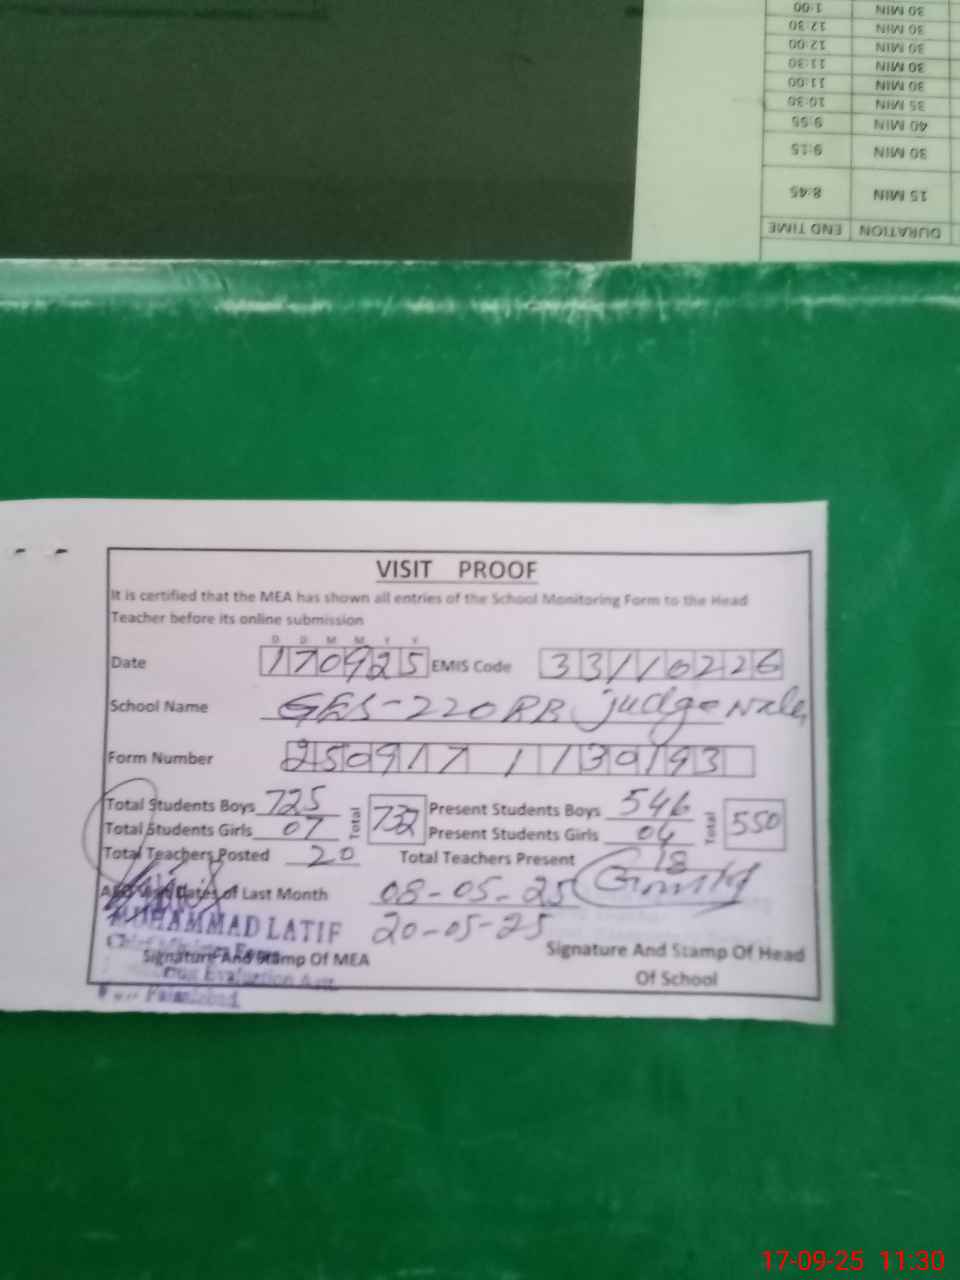 1:00 30 MIN
12:30 30 MIN
12:00 30 MIN
11:30 30 MIN
11:00 30 MIN
10:30 35 MIN
9:55 40 MIN
9:15 30 MIN
8:45 15 MIN
END TIME DURATION
VISIT PROOF
It is certified that the MEA has shown all entries of the School Monitoring Form to the Head
Teacher before its online submission
D D M M Y Y
Date 170925 EMIS Code 33110226
School Name GES-220 RB judge wala
Form Number 250917 1130193
Total Students Boys 725 Total 732 Present Students Boys 546 Total 550
Total Students Girls 07 Present Students Girls 04
Total Teachers Posted 20 Total Teachers Present 18
Visit Dates of Last Month 08-05-25
MUHAMMAD LATIF 20-05-25
Signature And Stamp Of MEA Signature And Stamp Of Head
Of School
Evaluation
Faisalabad
17-09-25 11:30